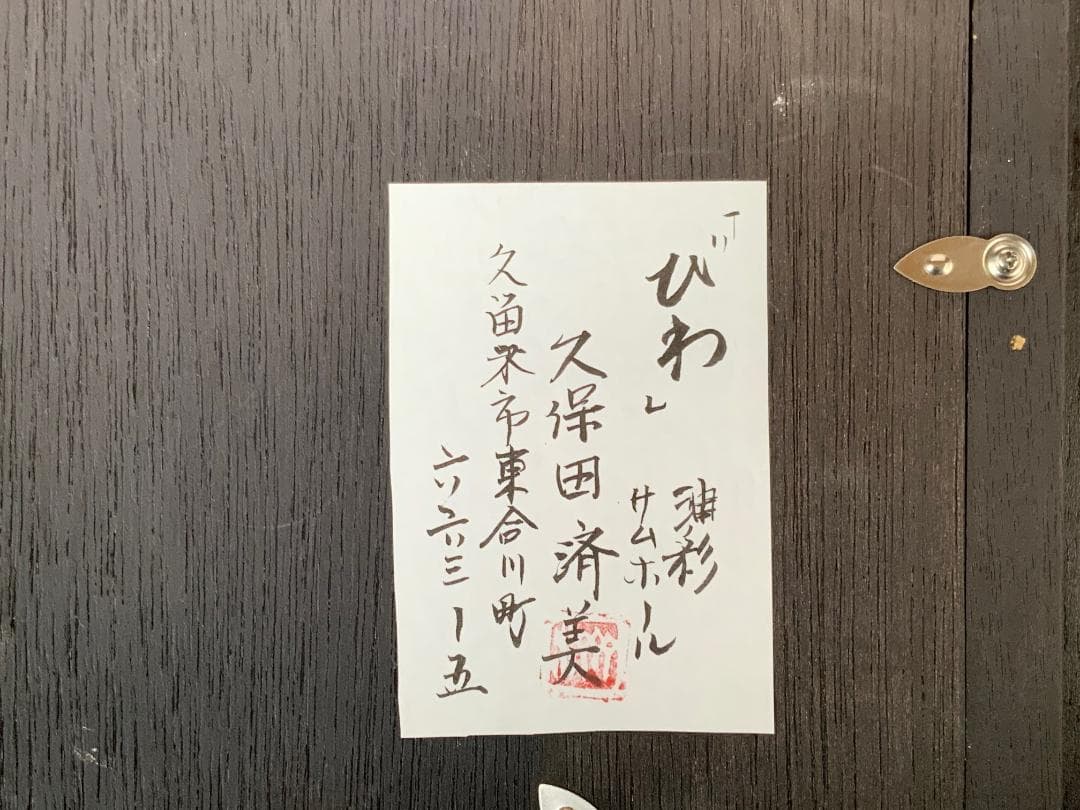 「びわ」
油彩
サムホール
久保田済美
久留米市東合川町
六ノ六ノ三ー五